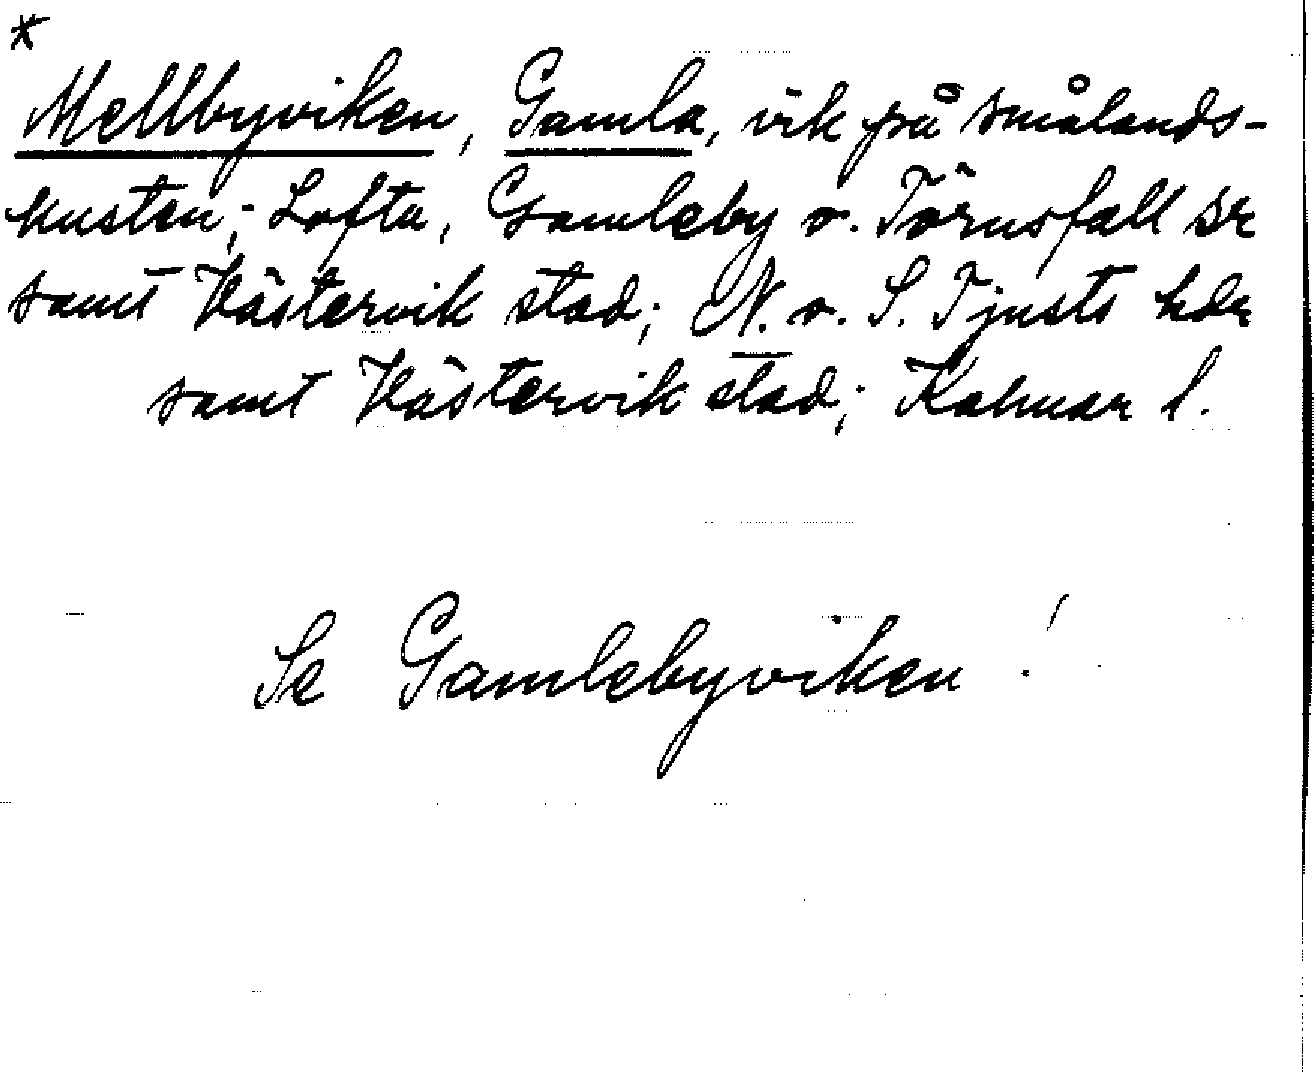 *
Mellbyviken, Gamla, vik på smålands-
kusten; Lofta, Gamleby o. Törnsfall sr
samt Västervik stad; N. o. S. Tjusts hdr
samt Västervik stad; Kalmar l.
Se Gamlebyviken!